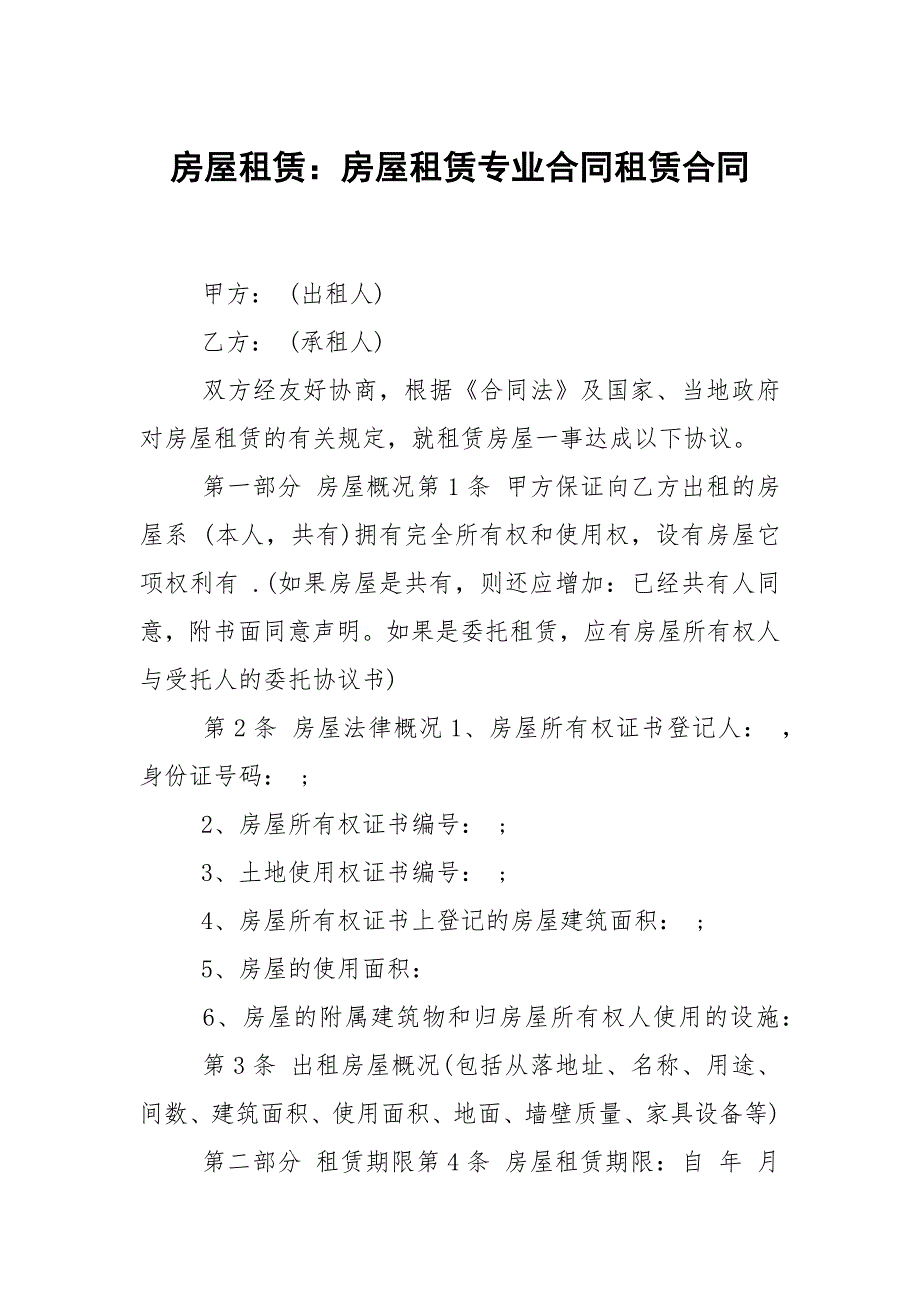 房屋租赁：房屋租赁专业合同租赁合同
甲方： (出租人)
乙方： (承租人)
双方经友好协商，根据《合同法》及国家、当地政府
对房屋租赁的有关规定，就租赁房屋一事达成以下协议。
第一部分 房屋概况第1条 甲方保证向乙方出租的房
屋系 (本人，共有)拥有完全所有权和使用权，设有房屋它
项权利有 .(如果房屋是共有，则还应增加：已经共有人同
意，附书面同意声明。如果是委托租赁，应有房屋所有权人
与受托人的委托协议书)
第2条 房屋法律概况1、房屋所有权证书登记人： ，
身份证号码： ;
2、房屋所有权证书编号： ;
3、土地使用权证书编号： ;
4、房屋所有权证书上登记的房屋建筑面积： ;
5、房屋的使用面积：
6、房屋的附属建筑物和归房屋所有权人使用的设施：
第3条 出租房屋概况(包括从落地址、名称、用途、
间数、建筑面积、使用面积、地面、墙壁质量、家具设备等)
第二部分 租赁期限第4条 房屋租赁期限：自 年 月